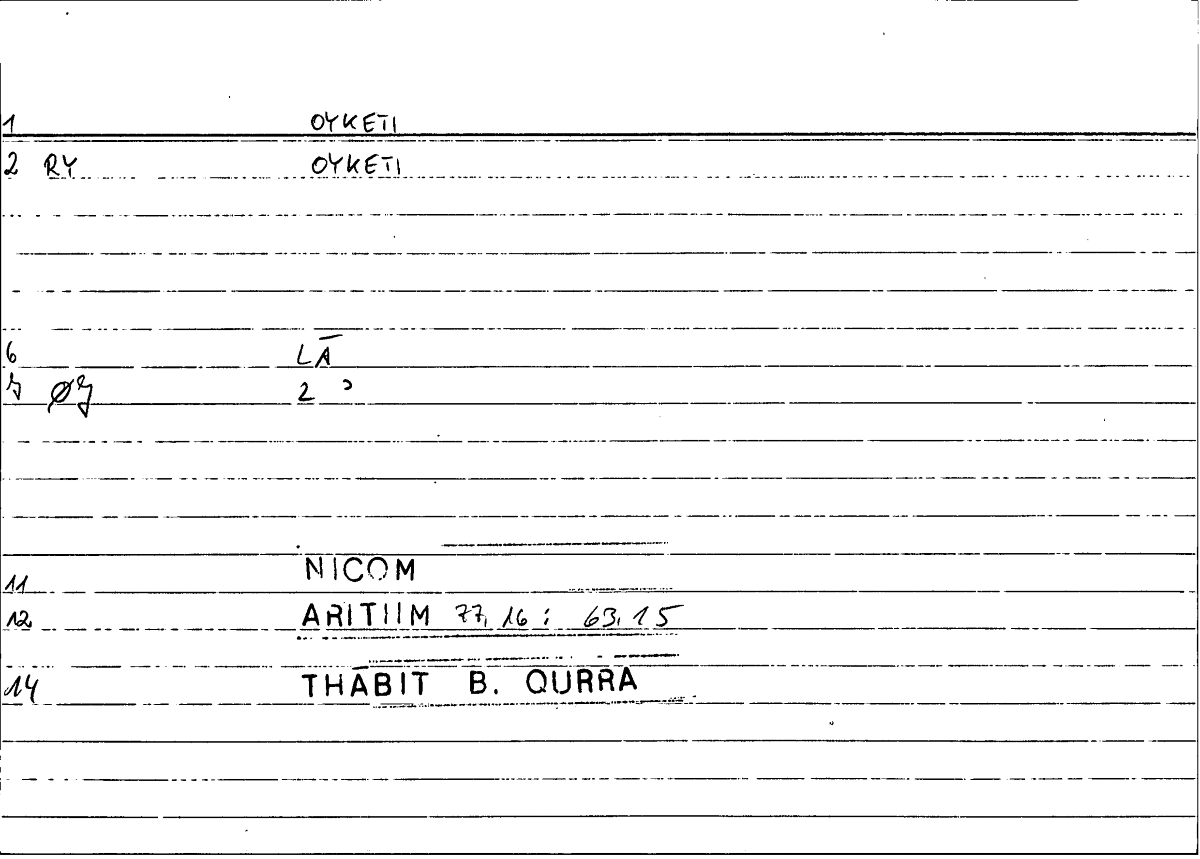 1 OYKETI
2 RY OYKETI
6 LĀ
7 Ø7 2 ʾ
11 NICOM
12 ARITHM 77,16 : 63,15
14 THĀBIT B. QURRA